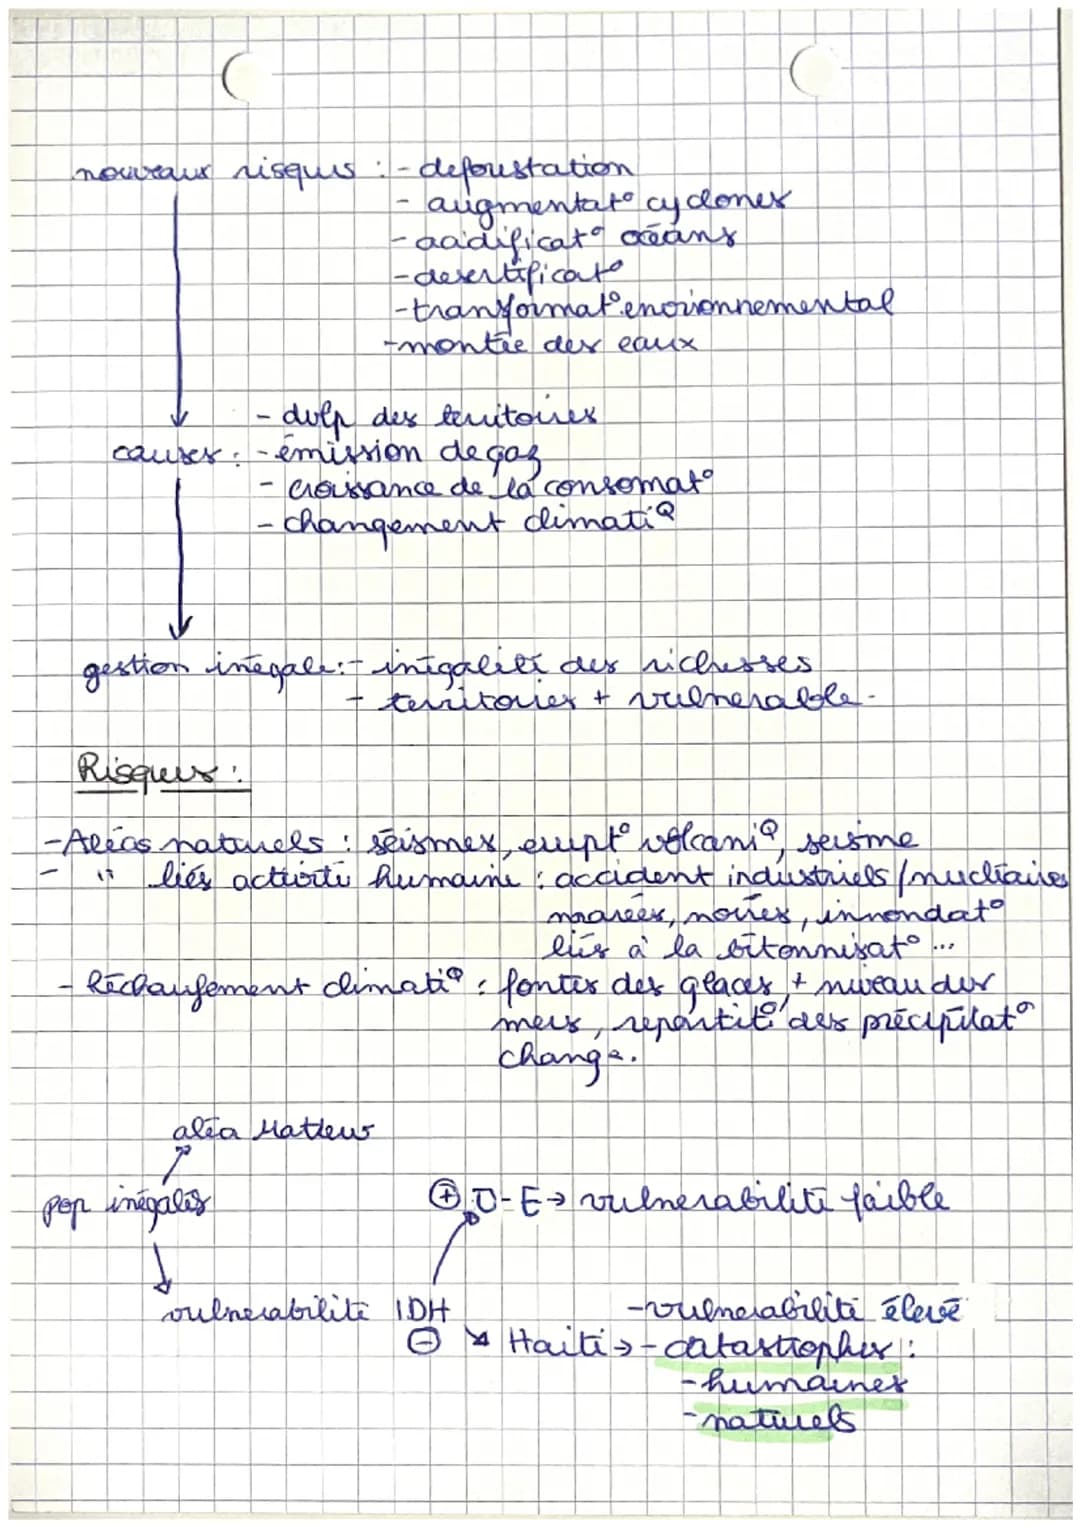 nouveaux risques : - deforestation
- augmentat° cyclones
- acidificat° océans
- desertificat°
- transformat° environnemental
- montée des eaux
- dvlp des territoires
causes : - émission de gaz
- croissance de la consomat°
- changement climatiQ
gestion inégale : - inégalité des richesses
- territoires + vulnerable.
Risques :
- Aléas naturels : séismes, erupt° volcaniQ, seisme
- " liés activité humaine : accident industriels / nucléaires
marées, noires, innondat°
liés à la bétonnisat° ...
- Réchaufement climatiQ : fontes des glaces, + niveau des
mers, repartit° des précipitat°
change.
aléa Matteus
pop inégales
⊕ U-E → vulnerabilité faible
vulnerabilité IDH
- vulnerabilité élevé
⊖ ↘ Haiti → - catastrophes :
- humaines
- naturels